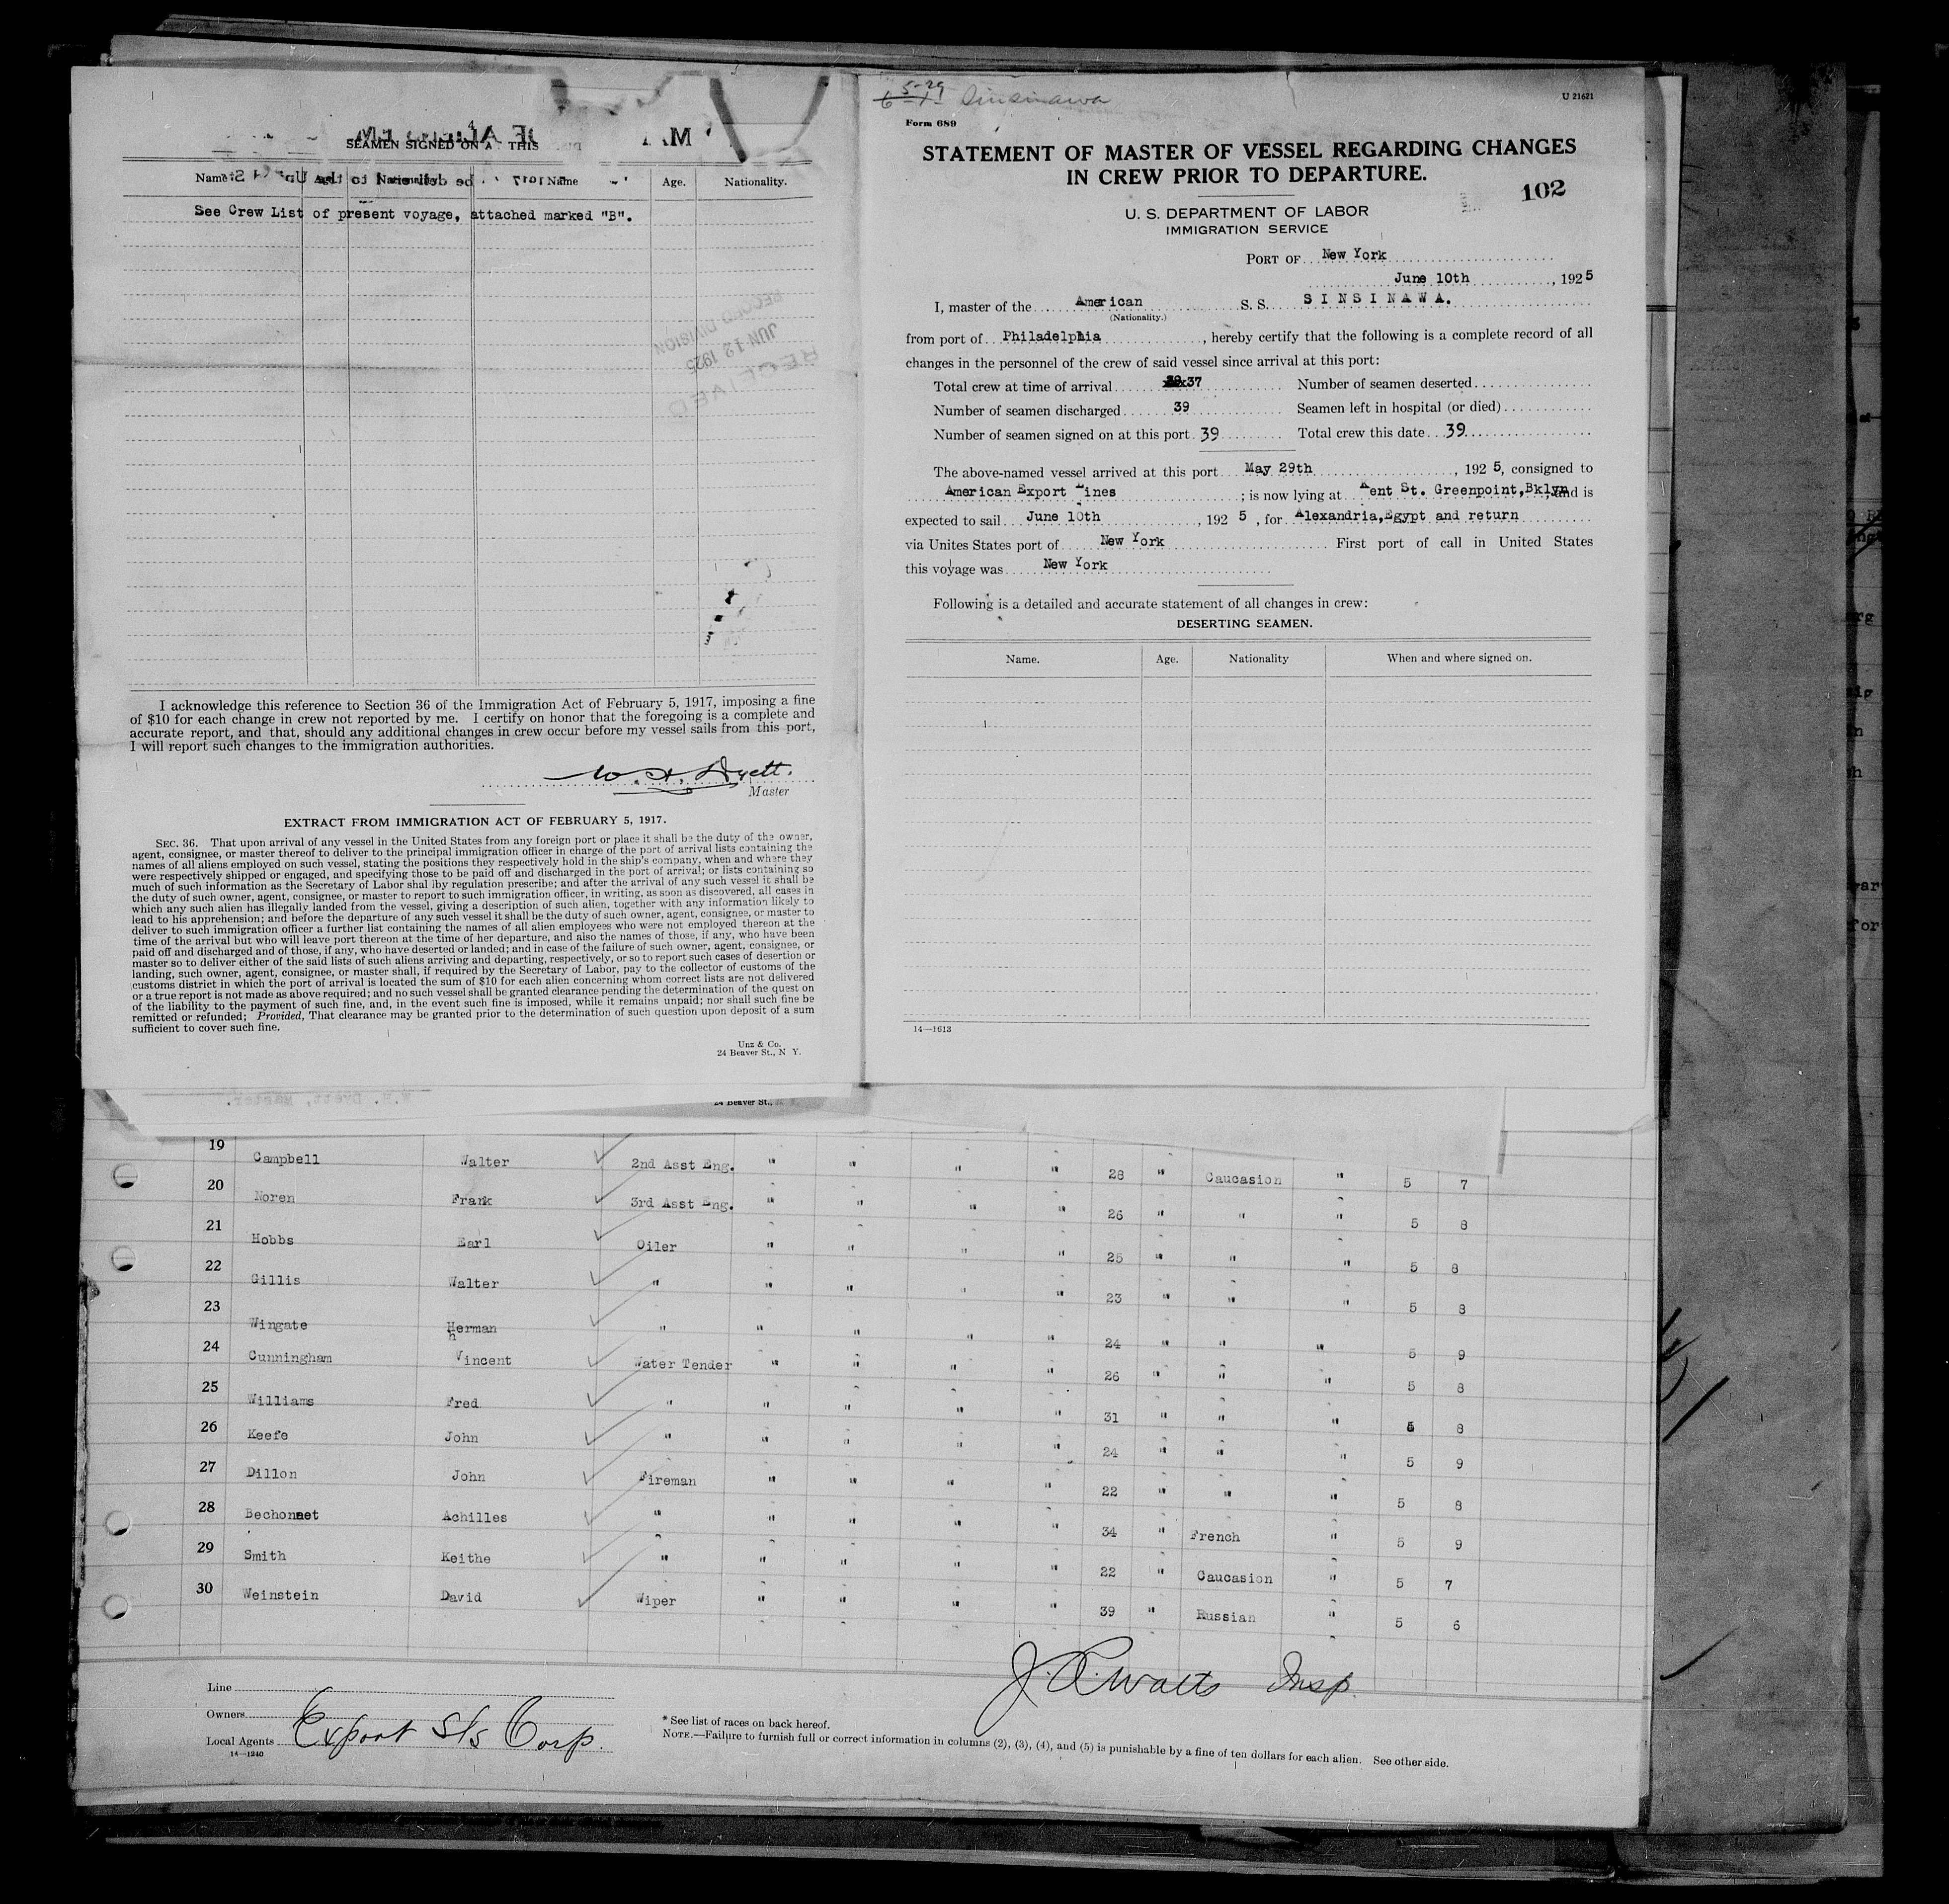 SEAMEN SIGNED ON A THIS
Name Age Nationality Name Age. Nationality.
See Crew List of present voyage, attached marked "B".
RECORD DIVISION
JUN 12 1925
RECEIVED
I acknowledge this reference to Section 36 of the Immigration Act of February 5, 1917, imposing a fine
of $10 for each change in crew not reported by me. I certify on honor that the foregoing is a complete and
accurate report, and that, should any additional changes in crew occur before my vessel sails from this port,
I will report such changes to the immigration authorities.
W. H. Dyett.
Master
EXTRACT FROM IMMIGRATION ACT OF FEBRUARY 5, 1917.
SEC. 36. That upon arrival of any vessel in the United States from any foreign port or place it shall be the duty of the owner,
agent, consignee, or master thereof to deliver to the principal immigration officer in charge of the port of arrival lists containing the
names of all aliens employed on such vessel, stating the positions they respectively hold in the ship's company, when and where they
were respectively shipped or engaged, and specifying those to be paid off and discharged in the port of arrival; or lists containing so
much of such information as the Secretary of Labor shal lby regulation prescribe; and after the arrival of any such vessel it shall be
the duty of such owner, agent, consignee, or master to report to such immigration officer, in writing, as soon as discovered, all cases in
which any such alien has illegally landed from the vessel, giving a description of such alien, together with any information likely to
lead to his apprehension; and before the departure of any such vessel it shall be the duty of such owner, agent, consignee, or master to
deliver to such immigration officer a further list containing the names of all alien employees who were not employed thereon at the
time of the arrival but who will leave port thereon at the time of her departure, and also the names of those, if any, who have been
paid off and discharged and of those, if any, who have deserted or landed; and in case of the failure of such owner, agent, consignee, or
master so to deliver either of the said lists of such aliens arriving and departing, respectively, or so to report such cases of desertion or
landing, such owner, agent, consignee, or master shall, if required by the Secretary of Labor, pay to the collector of customs of the
customs district in which the port of arrival is located the sum of $10 for each alien concerning whom correct lists are not delivered
or a true report is not made as above required; and no such vessel shall be granted clearance pending the determination of the quest on
of the liability to the payment of such fine, and, in the event such fine is imposed, while it remains unpaid; nor shall such fine be
remitted or refunded; Provided, That clearance may be granted prior to the determination of such question upon deposit of a sum
sufficient to cover such fine.
Unz & Co.
24 Beaver St., N Y.
5-29 Sinsinawa
U 21621
Form 689
STATEMENT OF MASTER OF VESSEL REGARDING CHANGES
IN CREW PRIOR TO DEPARTURE.
102
U. S. DEPARTMENT OF LABOR
IMMIGRATION SERVICE
PORT OF New York
June 10th, 1925
I, master of the American S. S. SINSINAWA.
(Nationality.)
from port of Philadelphia, hereby certify that the following is a complete record of all
changes in the personnel of the crew of said vessel since arrival at this port:
Total crew at time of arrival 37 Number of seamen deserted
Number of seamen discharged 39 Seamen left in hospital (or died)
Number of seamen signed on at this port 39 Total crew this date 39
The above-named vessel arrived at this port May 29th, 1925, consigned to
American Export Lines; is now lying at Kent St. Greenpoint, Bklyn and is
expected to sail June 10th, 1925, for Alexandria, Egypt and return
via Unites States port of New York First port of call in United States
this voyage was New York
Following is a detailed and accurate statement of all changes in crew:
DESERTING SEAMEN.
Name. Age. Nationality When and where signed on.
14—1613
W.H. Dyett, Master.
24 Beaver St.,
19 Campbell Walter 2nd Asst Eng. " " " " 28 " Caucasion " 5 7
20 Noren Frank 3rd Asst Eng. " " " " 26 " " " 5 8
21 Hobbs Earl Oiler " " " " 25 " " " 5 8
22 Gillis Walter " " " " " 23 " " " 5 8
23 Wingate Herman " " " " " 24 " " " 5 9
24 Cunningham Vincent Water Tender " " " " 26 " " " 5 8
25 Williams Fred " " " " " 31 " " " 5 8
26 Keefe John " " " " " 24 " " " 5 9
27 Dillon John Fireman " " " " 22 " " " 5 8
28 Bechonnet Achilles " " " " " 34 " French " 5 9
29 Smith Keithe " " " " " 22 " Caucasion " 5 7
30 Weinstein David Wiper " " " " 39 " Russian " 5 6
J. A. Watts Insp.
Line
Owners
Local Agents Export S/s Corp.
14—1240
* See list of races on back hereof.
NOTE.—Failure to furnish full or correct information in columns (2), (3), (4), and (5) is punishable by a fine of ten dollars for each alien. See other side.